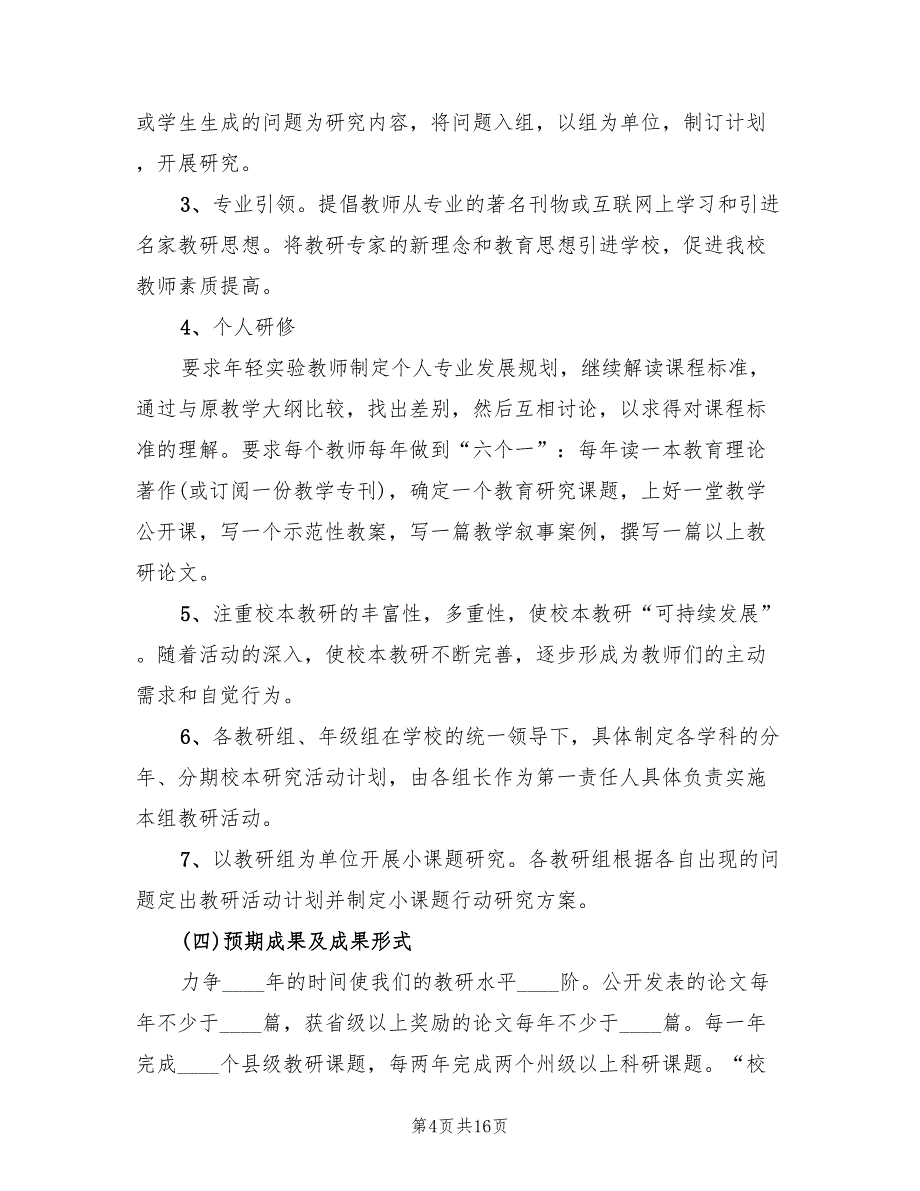 或学生生成的问题为研究内容，将问题入组，以组为单位，制订计划
，开展研究。
3、专业引领。提倡教师从专业的著名刊物或互联网上学习和引进
名家教研思想。将教研专家的新理念和教育思想引进学校，促进我校
教师素质提高。
4、个人研修
要求年轻实验教师制定个人专业发展规划，继续解读课程标准，
通过与原教学大纲比较，找出差别，然后互相讨论，以求得对课程标
准的理解。要求每个教师每年做到“六个一”：每年读一本教育理论
著作(或订阅一份教学专刊)，确定一个教育研究课题，上好一堂教学
公开课，写一个示范性教案，写一篇教学叙事案例，撰写一篇以上教
研论文。
5、注重校本教研的丰富性，多重性，使校本教研“可持续发展”
。随着活动的深入，使校本教研不断完善，逐步形成为教师们的主动
需求和自觉行为。
6、各教研组、年级组在学校的统一领导下，具体制定各学科的分
年、分期校本研究活动计划，由各组长作为第一责任人具体负责实施
本组教研活动。
7、以教研组为单位开展小课题研究。各教研组根据各自出现的问
题定出教研活动计划并制定小课题行动研究方案。
(四)预期成果及成果形式
力争____年的时间使我们的教研水平____阶。公开发表的论文每
年不少于____篇，获省级以上奖励的论文每年不少于____篇。每一年
完成____个县级教研课题，每两年完成两个州级以上科研课题。“校
第4页共16页